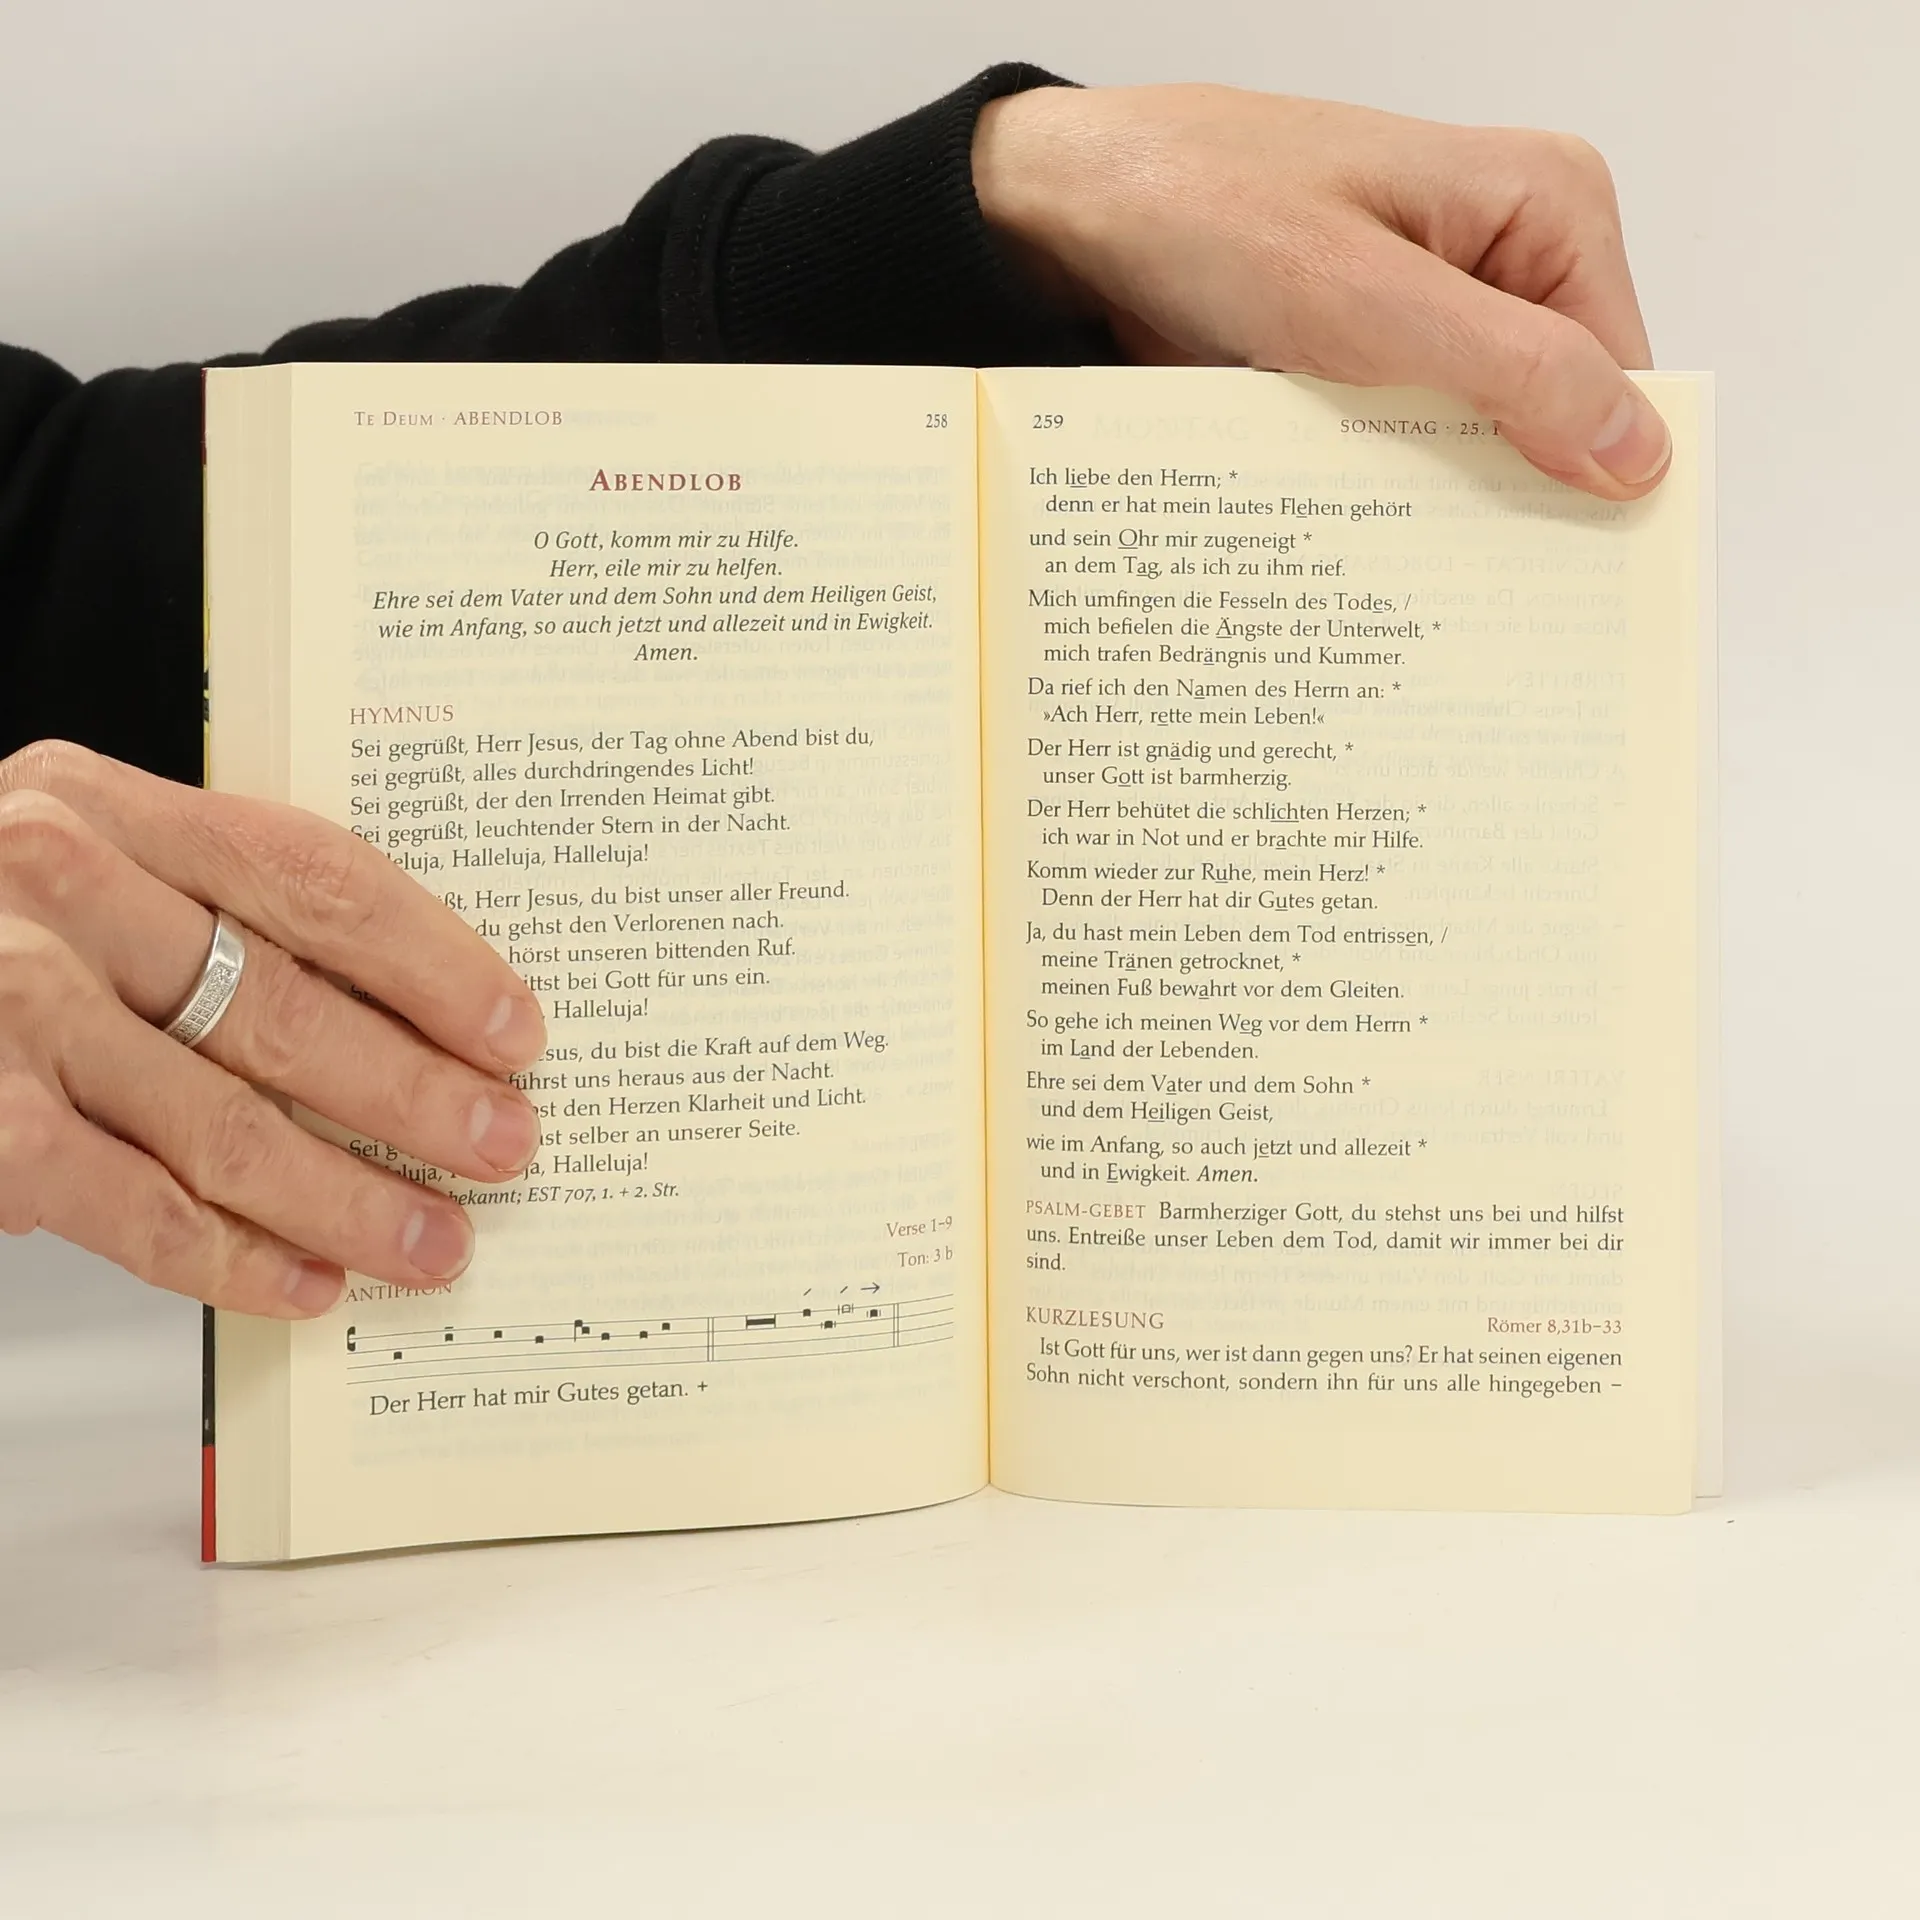 TE DEUM · ABENDLOB 258
ABENDLOB
O Gott, komm mir zu Hilfe.
Herr, eile mir zu helfen.
Ehre sei dem Vater und dem Sohn und dem Heiligen Geist,
wie im Anfang, so auch jetzt und allezeit und in Ewigkeit.
Amen.
HYMNUS
Sei gegrüßt, Herr Jesus, der Tag ohne Abend bist du,
sei gegrüßt, alles durchdringendes Licht!
Sei gegrüßt, der den Irrenden Heimat gibt.
Sei gegrüßt, leuchtender Stern in der Nacht.
eluja, Halleluja, Halleluja!
ßt, Herr Jesus, du bist unser aller Freund.
du gehst den Verlorenen nach.
hörst unseren bittenden Ruf.
ittst bei Gott für uns ein.
, Halleluja!
esus, du bist die Kraft auf dem Weg.
führst uns heraus aus der Nacht.
st den Herzen Klarheit und Licht.
Sei g ist selber an unserer Seite.
luja, ja, Halleluja!
bekannt; EST 707, 1. + 2. Str.
Verse 1–9
Ton: 3 b
ANTIPHON
Der Herr hat mir Gutes getan. +
259 SONNTAG · 25.
Ich liebe den Herrn; *
denn er hat mein lautes Flehen gehört
und sein Ohr mir zugeneigt *
an dem Tag, als ich zu ihm rief.
Mich umfingen die Fesseln des Todes, /
mich befielen die Ängste der Unterwelt, *
mich trafen Bedrängnis und Kummer.
Da rief ich den Namen des Herrn an: *
»Ach Herr, rette mein Leben!«
Der Herr ist gnädig und gerecht, *
unser Gott ist barmherzig.
Der Herr behütet die schlichten Herzen; *
ich war in Not und er brachte mir Hilfe.
Komm wieder zur Ruhe, mein Herz! *
Denn der Herr hat dir Gutes getan.
Ja, du hast mein Leben dem Tod entrissen, /
meine Tränen getrocknet, *
meinen Fuß bewahrt vor dem Gleiten.
So gehe ich meinen Weg vor dem Herrn *
im Land der Lebenden.
Ehre sei dem Vater und dem Sohn *
und dem Heiligen Geist,
wie im Anfang, so auch jetzt und allezeit *
und in Ewigkeit. Amen.
PSALM-GEBET Barmherziger Gott, du stehst uns bei und hilfst
uns. Entreiße unser Leben dem Tod, damit wir immer bei dir
sind.
KURZLESUNG Römer 8,31b–33
Ist Gott für uns, wer ist dann gegen uns? Er hat seinen eigenen
Sohn nicht verschont, sondern ihn für uns alle hingegeben –